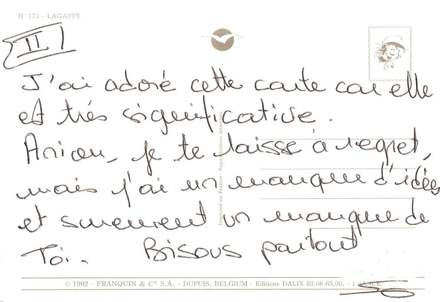 N° 173 - LAGAFFE
II
J'ai adoré cette carte car elle
est très significative.
je te laisse à regret,
mais j'ai un manque d'idées
et surement un manque de
Toi. Bisous partout
© 1992 - FRANQUIN & Cie S.A. - DUPUIS, BELGIUM - Editions DALIX